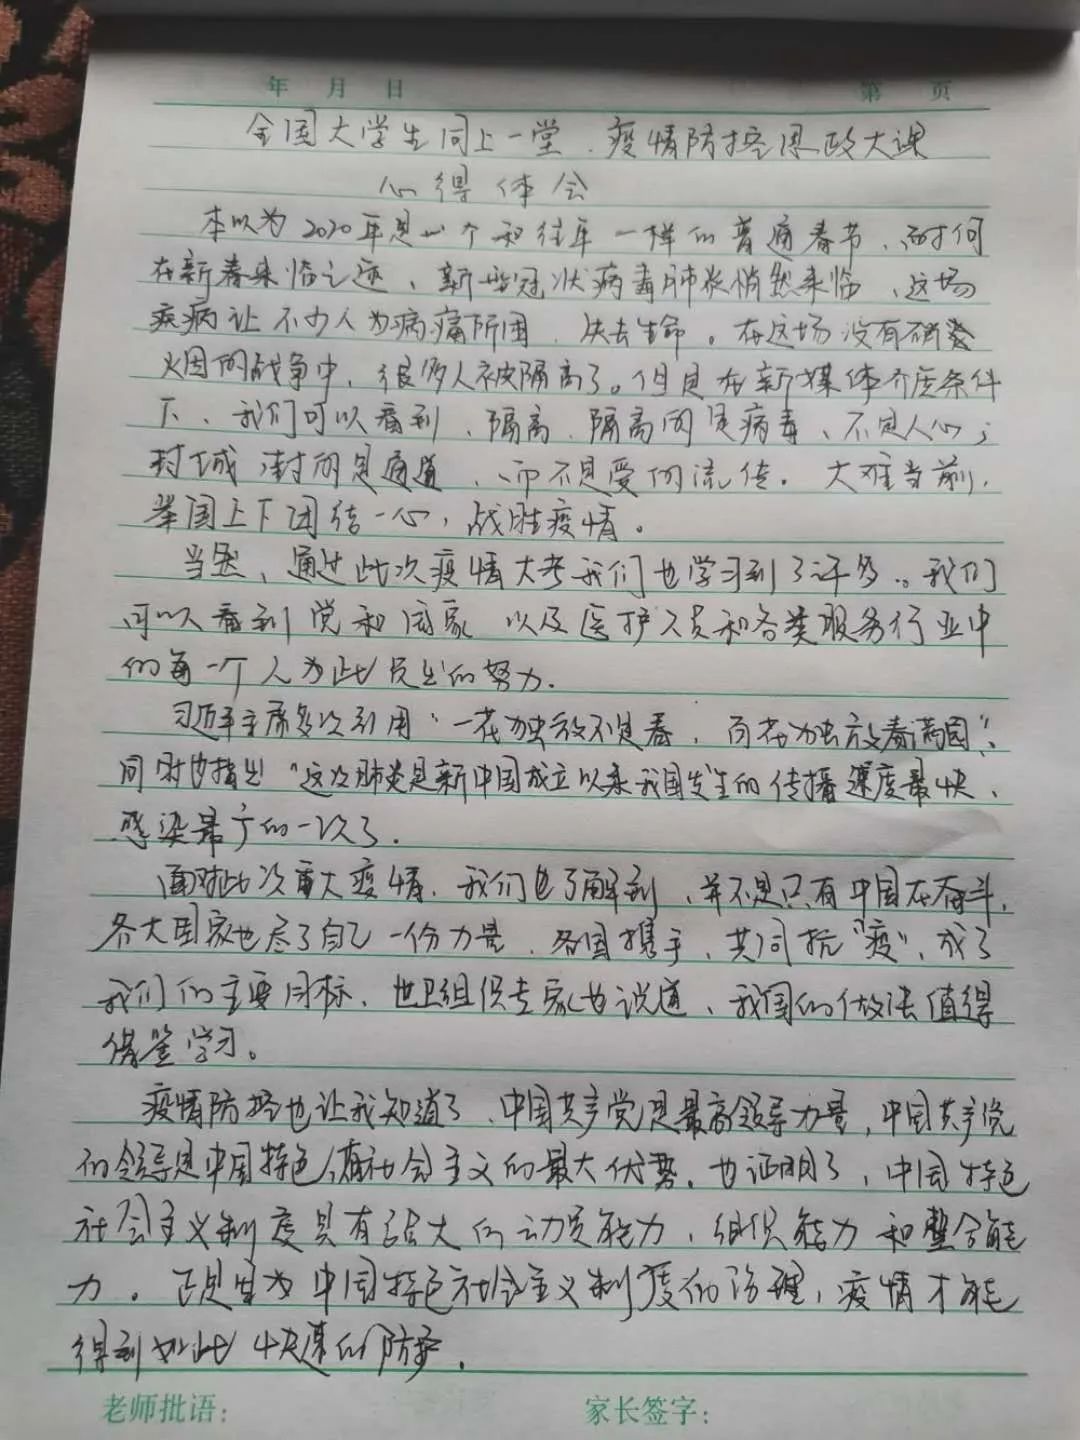 年 月 日 第 页
全国大学生同上一堂、疫情防控思政大课
心得体会
本以为2020年是一个和往年一样的普通春节、奈何
在新春来临之际、新型冠状病毒肺炎悄然来临、这场
疾病让不少人为病痛所困、失去生命。在这场没有硝
烟的战争中,很多人被隔离了。但是在新媒体介质条件
下、我们可以看到、隔离、隔离的是病毒、不是人心;
封城 封的是通道、而不是爱的流传。大难当前,
举国上下团结一心,战胜疫情。
当然、通过此次疫情大考我们也学习到了许多。我们
可以看到党和国家 以及医护人员和各类服务行业中
的每一个人为此 的努力.
习近平主席多次引用“一花独放不是春,百花独放春满园”、
同时也指出“这次肺炎是新中国成立以来我国发生的传播速度最快、
感染最广的一次了.
面对此次重大疫情,我们也了解到、并不是只有中国在奋斗,
各大国家也尽了自己一份力量、各国携手,共同抗“疫”,成了
我们的主要目标、世卫组织专家也说道、我国的做法值得
借鉴学习。
疫情防控也让我知道了、中国共产党是最高领导力量,中国共产党
的领导是中国特色 社会主义的最大优势。也证明了,中国特色
社会主义制度具有强大的动员能力,组织能力和整合能
力。正是因为中国特色社会主义制度的治理,疫情才能
得到如此快速的防护.
老师批语: 家长签字: